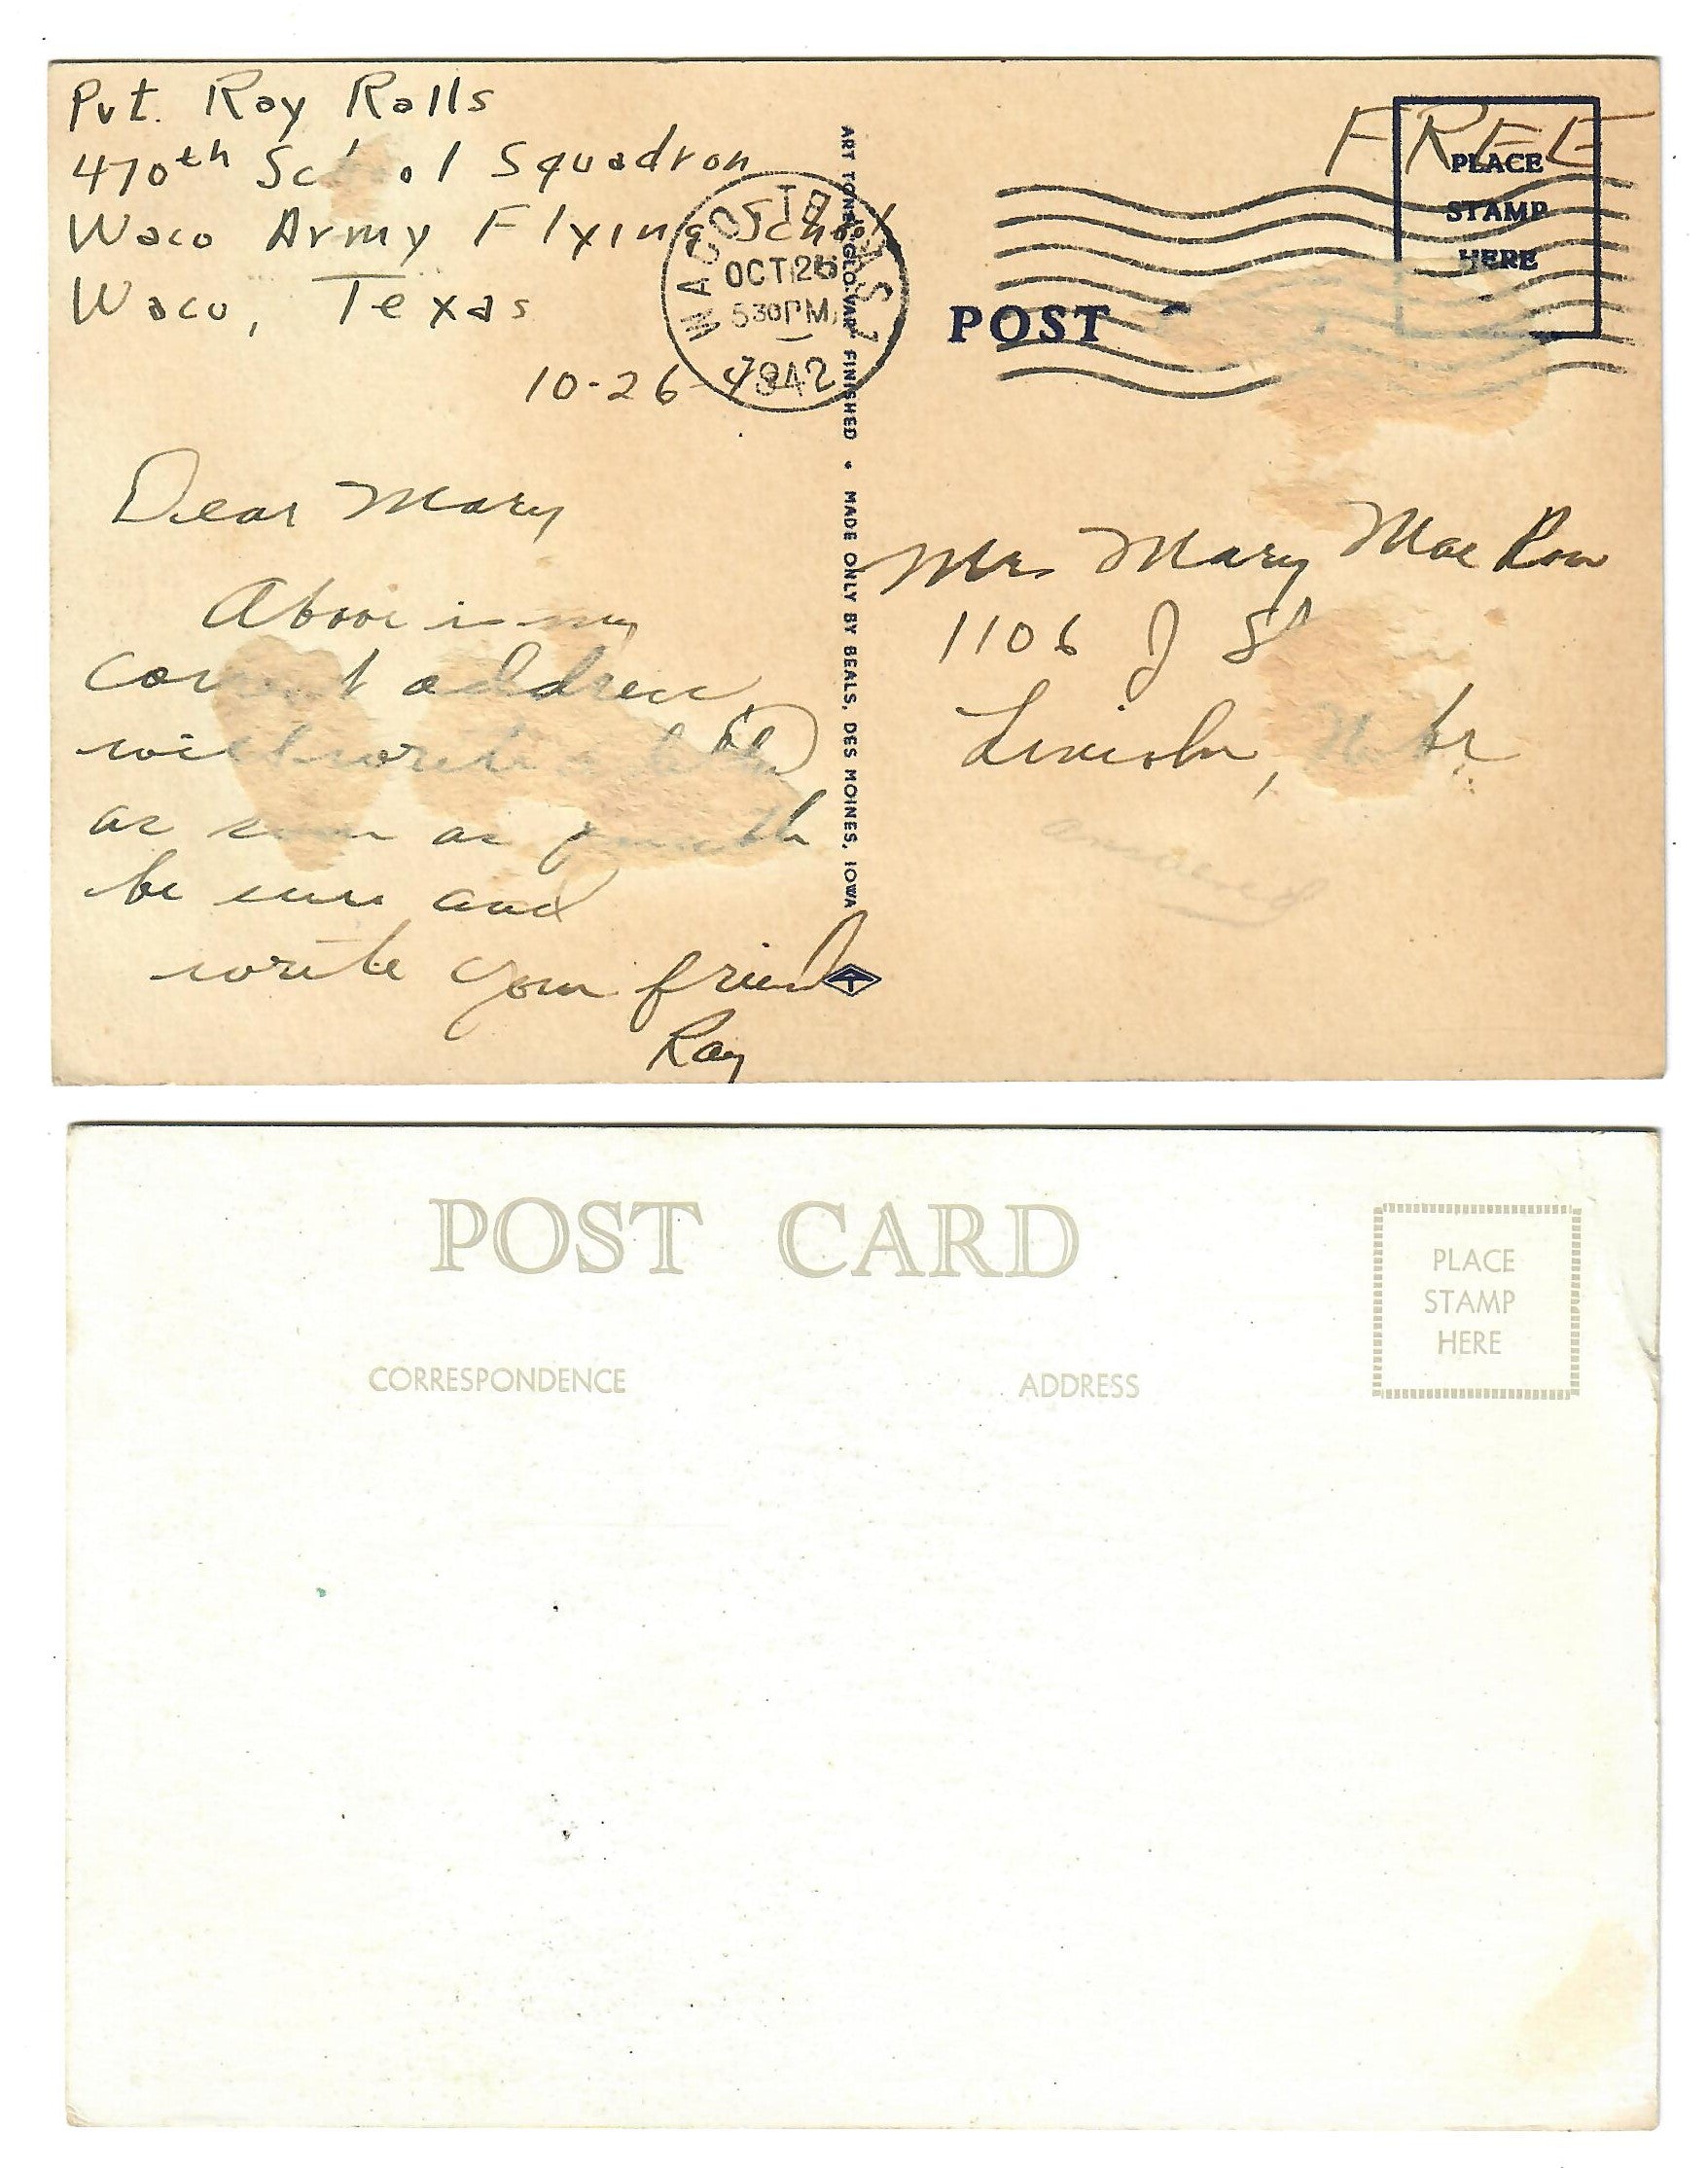 Pvt. Ray Ralls
470th School Squadron
Waco Army Flying School
Waco, Texas
10-26-42
WACO, TEXAS
OCT 26
530 PM
1942
FREE
PLACE
STAMP
HERE
POST
Dear Mary
Above is my
correct address
will write a letter
as soon as possible
be sure and
write your friend
Ray
ART TONE "GLO-VAR" FINISHED • MADE ONLY BY BEALS, DES MOINES, IOWA
Mrs Mary Mae
1106 J St
Lincoln, Nebr
answered
POST CARD
PLACE
STAMP
HERE
CORRESPONDENCE
ADDRESS